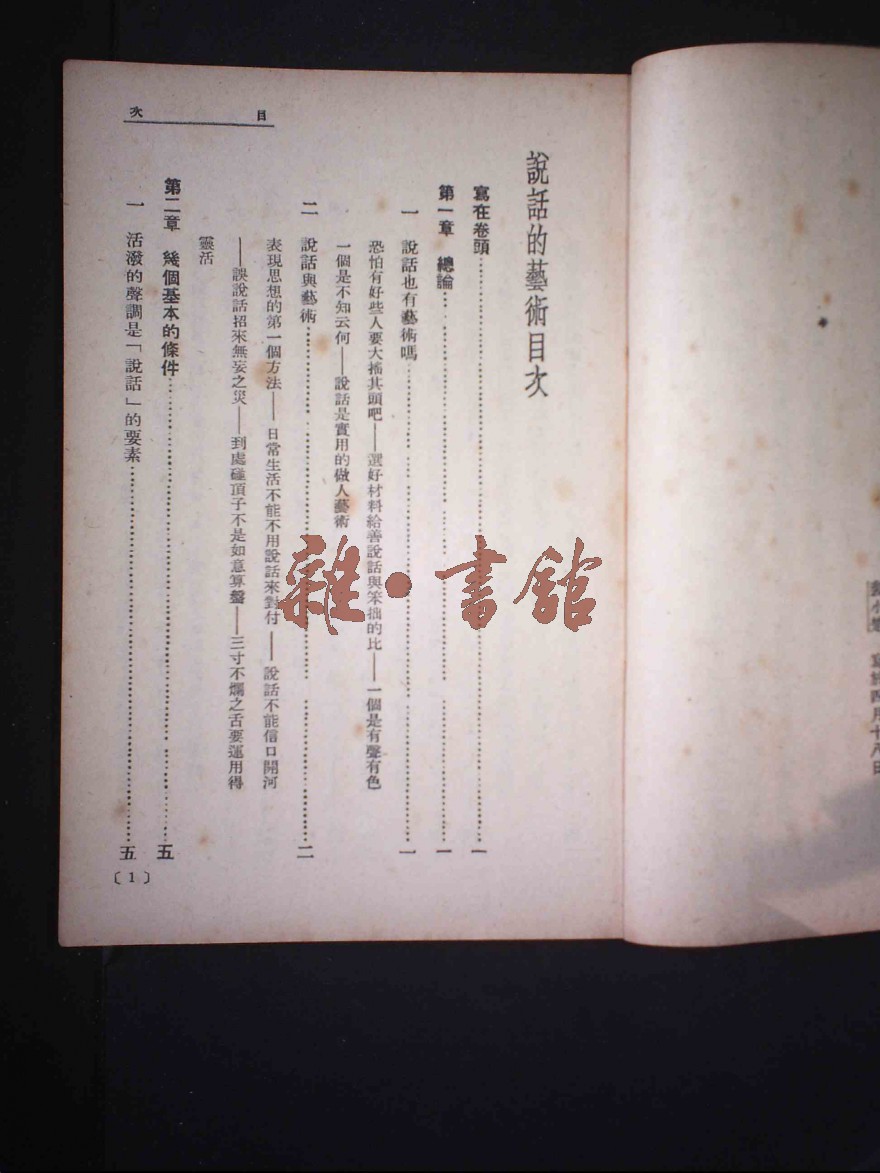 目次
說話的藝術目次
寫在卷頭……一
第一章 總論……一
一 說話也有藝術嗎……一
恐怕有好些人要大搖其頭吧——選好材料給善說話與笨拙的比——一個是有聲有色
一個是不知云何——說話是實用的做人藝術
二 說話與藝術……二
表現思想的第一個方法——日常生活不能不用說話來對付——說話不能信口開河
——誤說話招來無妄之災——到處碰頂子不是如意算盤——三寸不爛之舌要運用得
靈活
第二章 幾個基本的條件……五
一 活潑的聲調是「說話」的要素……五
〔1〕
雜·書館
四月十八日